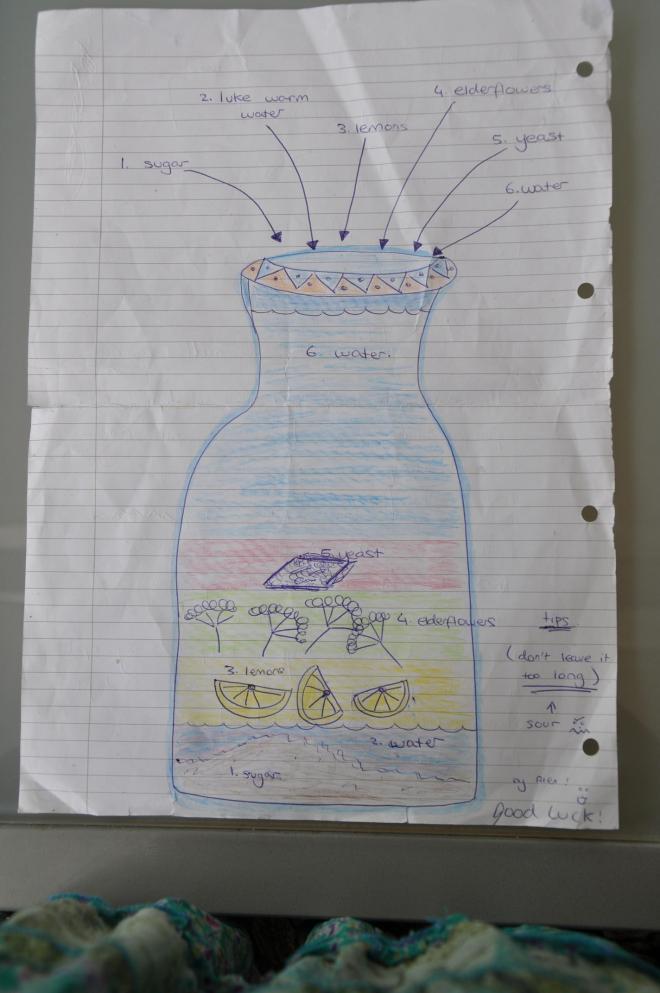 2. luke warm
water
4. elderflowers
3. lemons
5. yeast
1. sugar
6. water
6. water.
5. yeast
4. elderflowers
tips
(don't leave it
too long)
3. lemons
sour
2. water
1. sugar
by
Good Luck!